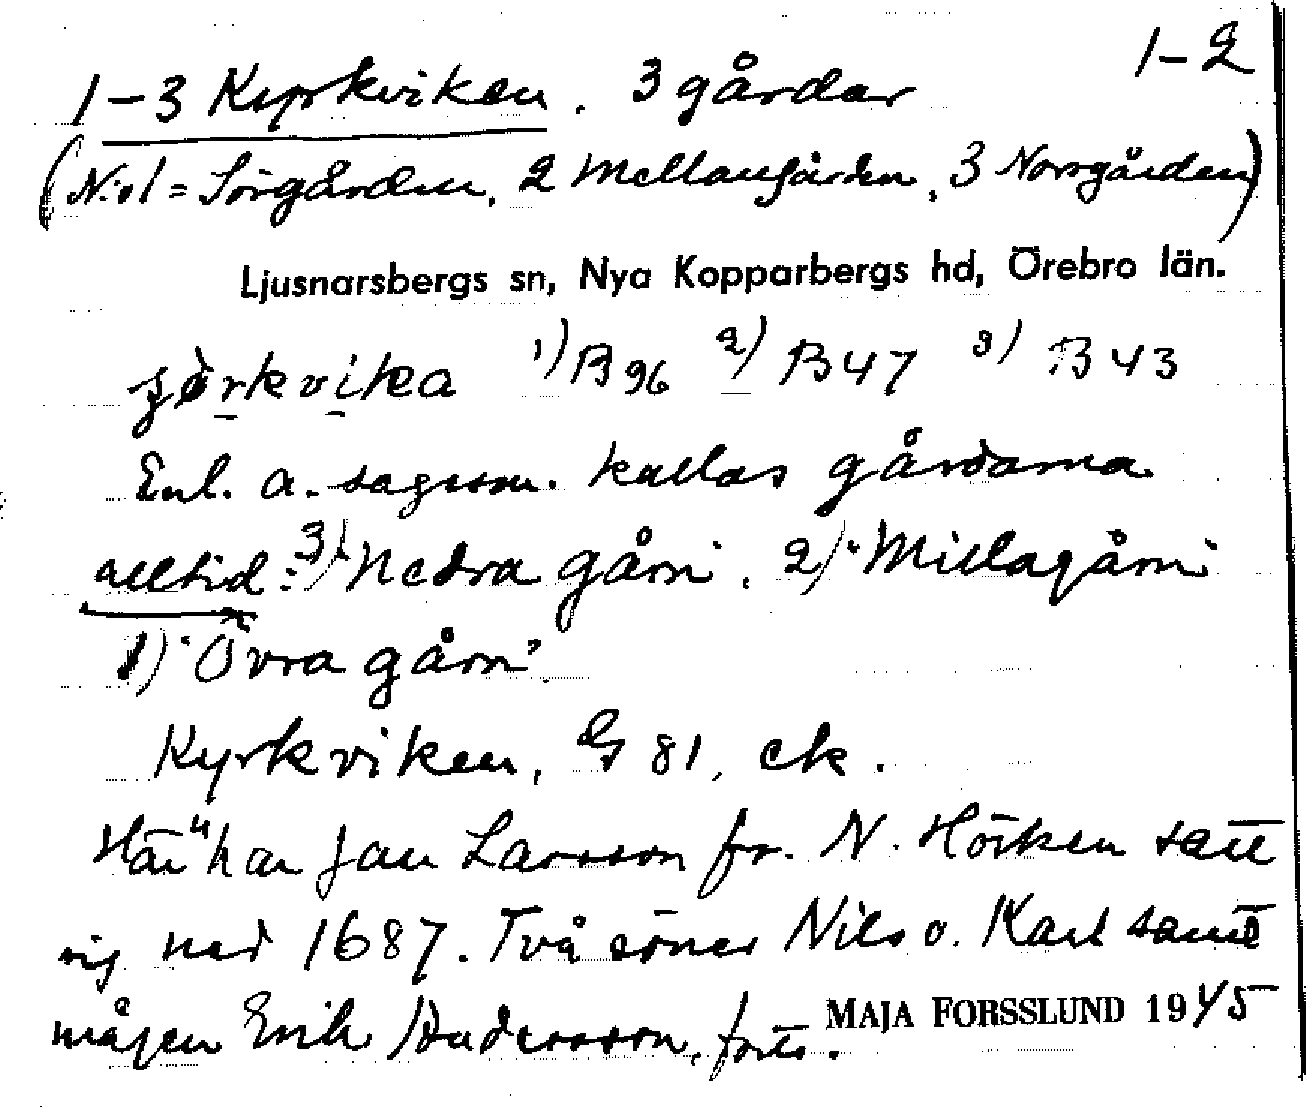 1-2
1-3 Kyrkviken. 3 gårdar
(N:o 1 = Sörgården, 2 Mellangården, 3 Norrgården)
Ljusnarsbergs sn, Nya Kopparbergs hd, Örebro län.
1) B 96 2) B 47 3) B 43
Enl. a. sagesm. kallas gårdarna
alltid: 3) "Nedra gårn". 2) "Millagårn"
1) "Övra gårn".
Kyrkviken, G 81, ek.
Här har Jan Larsson fr. N. Hörken satt
sig ned 1687. Två söner Nils o. Karl samt
mågen Erik Andersson, forts.
MAJA FORSSLUND 1945